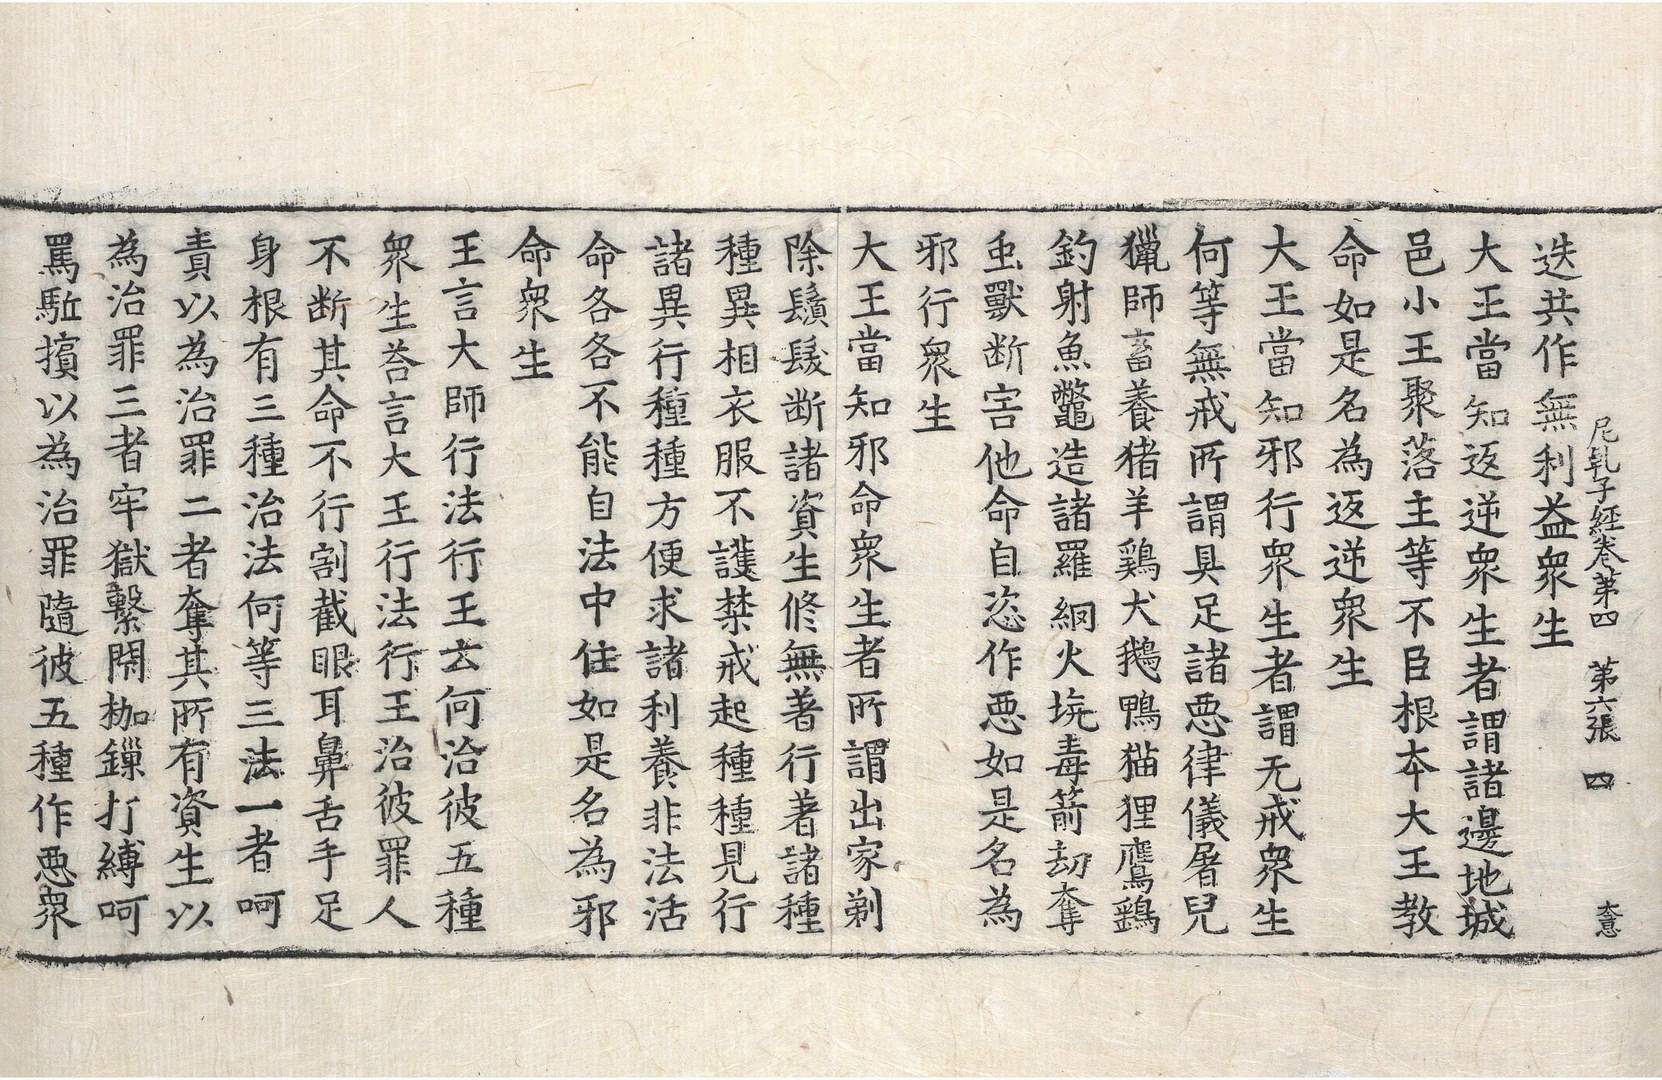 尼乹子經卷第四　第六張　四　大意
迭共作無利益衆生
大王當知返逆衆生者謂諸邊地城
邑小王聚落主等不臣根本大王教
命如是名為返逆衆生
大王當知邪行衆生者謂无戒衆生
何等無戒所謂具足諸惡律儀屠兒
獵師畜養猪羊鷄犬鵝鴨猫狸鷹鷂
釣射魚鼈造諸羅網火坑毒箭劫奪
虫獸断害他命自恣作惡如是名為
邪行衆生
大王當知邪命衆生者所謂出家剃
除鬚髮断諸資生修無著行著諸種
種異相衣服不護禁戒起種種見行
諸異行種種方便求諸利養非法活
命各各不能自法中住如是名為邪
命衆生
王言大師行法行王云何治彼五種
衆生荅言大王行法行王治彼罪人
不断其命不行割截眼耳鼻舌手足
身根有三種治法何等三法一者呵
責以為治罪二者奪其所有資生以
為治罪三者牢獄繫閇枷鏁打縛呵
罵駈擯以為治罪隨彼五種作惡衆